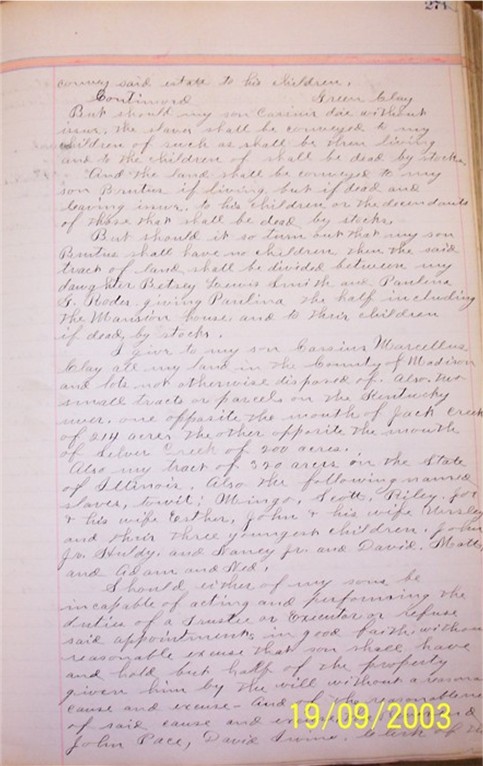 271
convey said estate to his children.
Continued Green Clay
But should my son Cassius die without
issue, the slaves shall be conveyed to my
children of such as shall be then living
and to the children of shall be dead by stocks.
And the land shall be conveyed to my
son Brutus if living, but if dead and
leaving issue, to his children or the descendants
of those that shall be dead by stocks.
But should it so turn out that my son
Brutus shall have no children then the said
tract of land shall be divided between my
daughter Betsey Lewis Smith and Paulina
G. Rodes. giving Paulina the half including
the Mansion house, and to their children
if dead, by stocks.
I give to my son Cassius Marcellus
Clay all my land in the County of Madison
and lots not otherwise disposed of. Also, two
small tracts or parcels on the Kentucky
river. one opposite the mouth of Jack Creek
of 214 acres the other opposite the mouth
of Silver Creek of 200 acres.
Also my tract of 320 acres in the State
of Illinois. Also the following named
slaves, towit; Mingo, Scott, Riley, Joe
& his wife Esther, John & his wife
and their three youngest children. John
Jr. Huldy. and Nancy Jr. and David,
and Adam and Ned.
Should either of my sons be
incapable of acting and performing the
duties of a Trustee or Executor or refuse
said appointments in good faith, without
reasonable excuse that son shall have
and hold but half of the property
given him by the will without a
cause and excuse - And of the
of said cause and
John Pace, David Irvine, clerk of the
19/09/2003